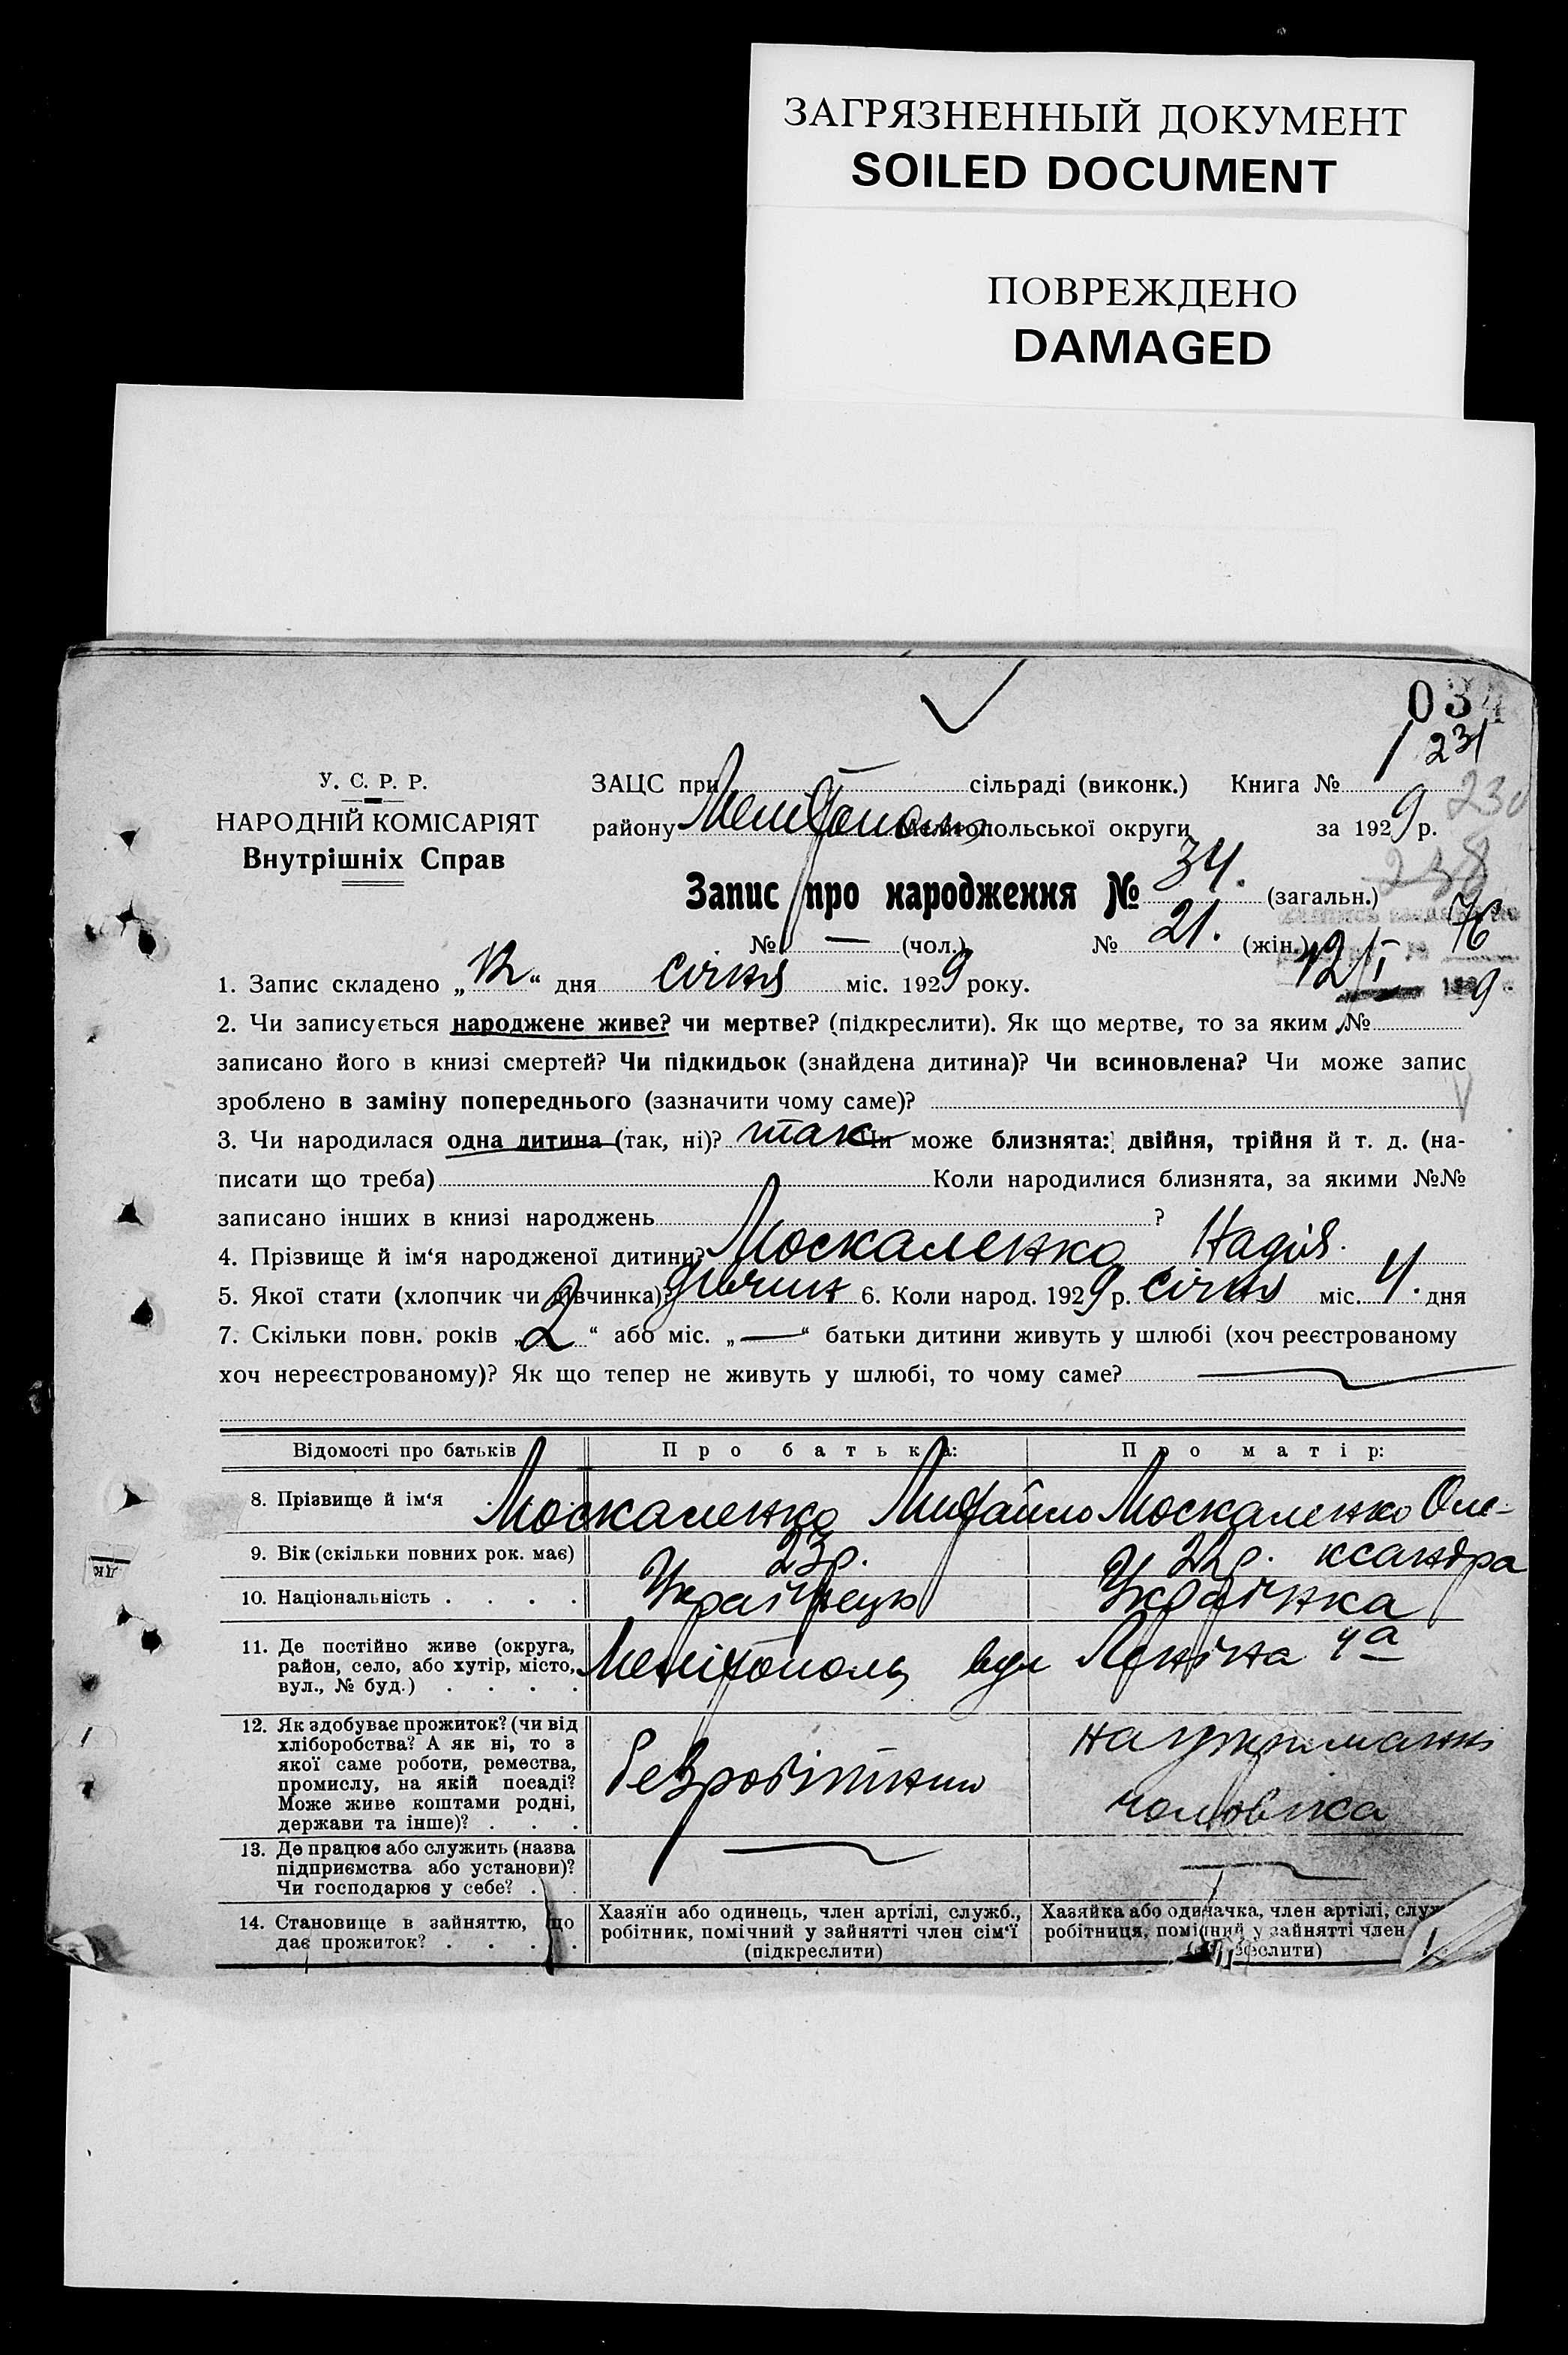 ЗАГРЯЗНЕННЫЙ ДОКУМЕНТ
SOILED DOCUMENT
ПОВРЕЖДЕНО
DAMAGED
034
231
230
У. С. Р. Р.
НАРОДНІЙ КОМІСАРІЯТ
Внутрішніх Справ
ЗАЦС при сільраді (виконк.) Книга № 1
району Мелітополь Мелітопольської округи за 1929 р.
238
Запис про народження № 34. (загальн.)
76
№ — (чол.) № 21. (жін.) 12/I 9
1. Запис складено „12“ дня січня міс. 1929 року.
2. Чи записується народжене живе? чи мертве? (підкреслити). Як що мертве, то за яким №
записано його в книзі смертей? Чи підкидьок (знайдена дитина)? Чи всиновлена? Чи може запис
зроблено в заміну попереднього (зазначити чому саме)?
3. Чи народилася одна дитина (так, ні)? так Чи може близнята: двійня, трійня й т. д. (на-
писати що треба) Коли народилися близнята, за якими №№
записано інших в книзі народжень ?
4. Прізвище й ім‘я народженої дитини? Москаленко Надія.
5. Якої стати (хлопчик чи дівчинка)? дівчин 6. Коли народ. 1929 р. січня міс. 4. дня
7. Скільки повн. років „2“ або міс. „—“ батьки дитини живуть у шлюбі (хоч реєстрованому
хоч нереєстрованому)? Як що тепер не живуть у шлюбі, то чому саме?
Відомості про батьків Про батька: Про матір:
8. Прізвище й ім‘я Москаленко Михайло Москаленко Оле-
9. Вік (скільки повних рок. має) 23р. 22р. ксандра
10. Національність . . . . Українець Українка
11. Де постійно живе (округа,
район, село, або хутір, місто,
вул., № буд.) . . . . Мелітополь вул Леніна 4а
12. Як здобуває прожиток? (чи від
хліборобства? А як ні, то з
якої саме роботи, ремества,
промислу, на якій посаді?
Може живе коштами родні,
держави та інше)? . . . Безробітний на утриманні
чоловіка
13. Де працює або служить (назва
підприємства або установи)?
Чи господарює у себе? . .
14. Становище в зайняттю, що
дає прожиток? . . . .
Хазяїн або одинець, член артілі, служб.,
робітник, помічний у зайнятті член сім‘ї
(підкреслити)
Хазяйка або одиначка, член артілі, служ
робітниця, помічний у зайнятті член